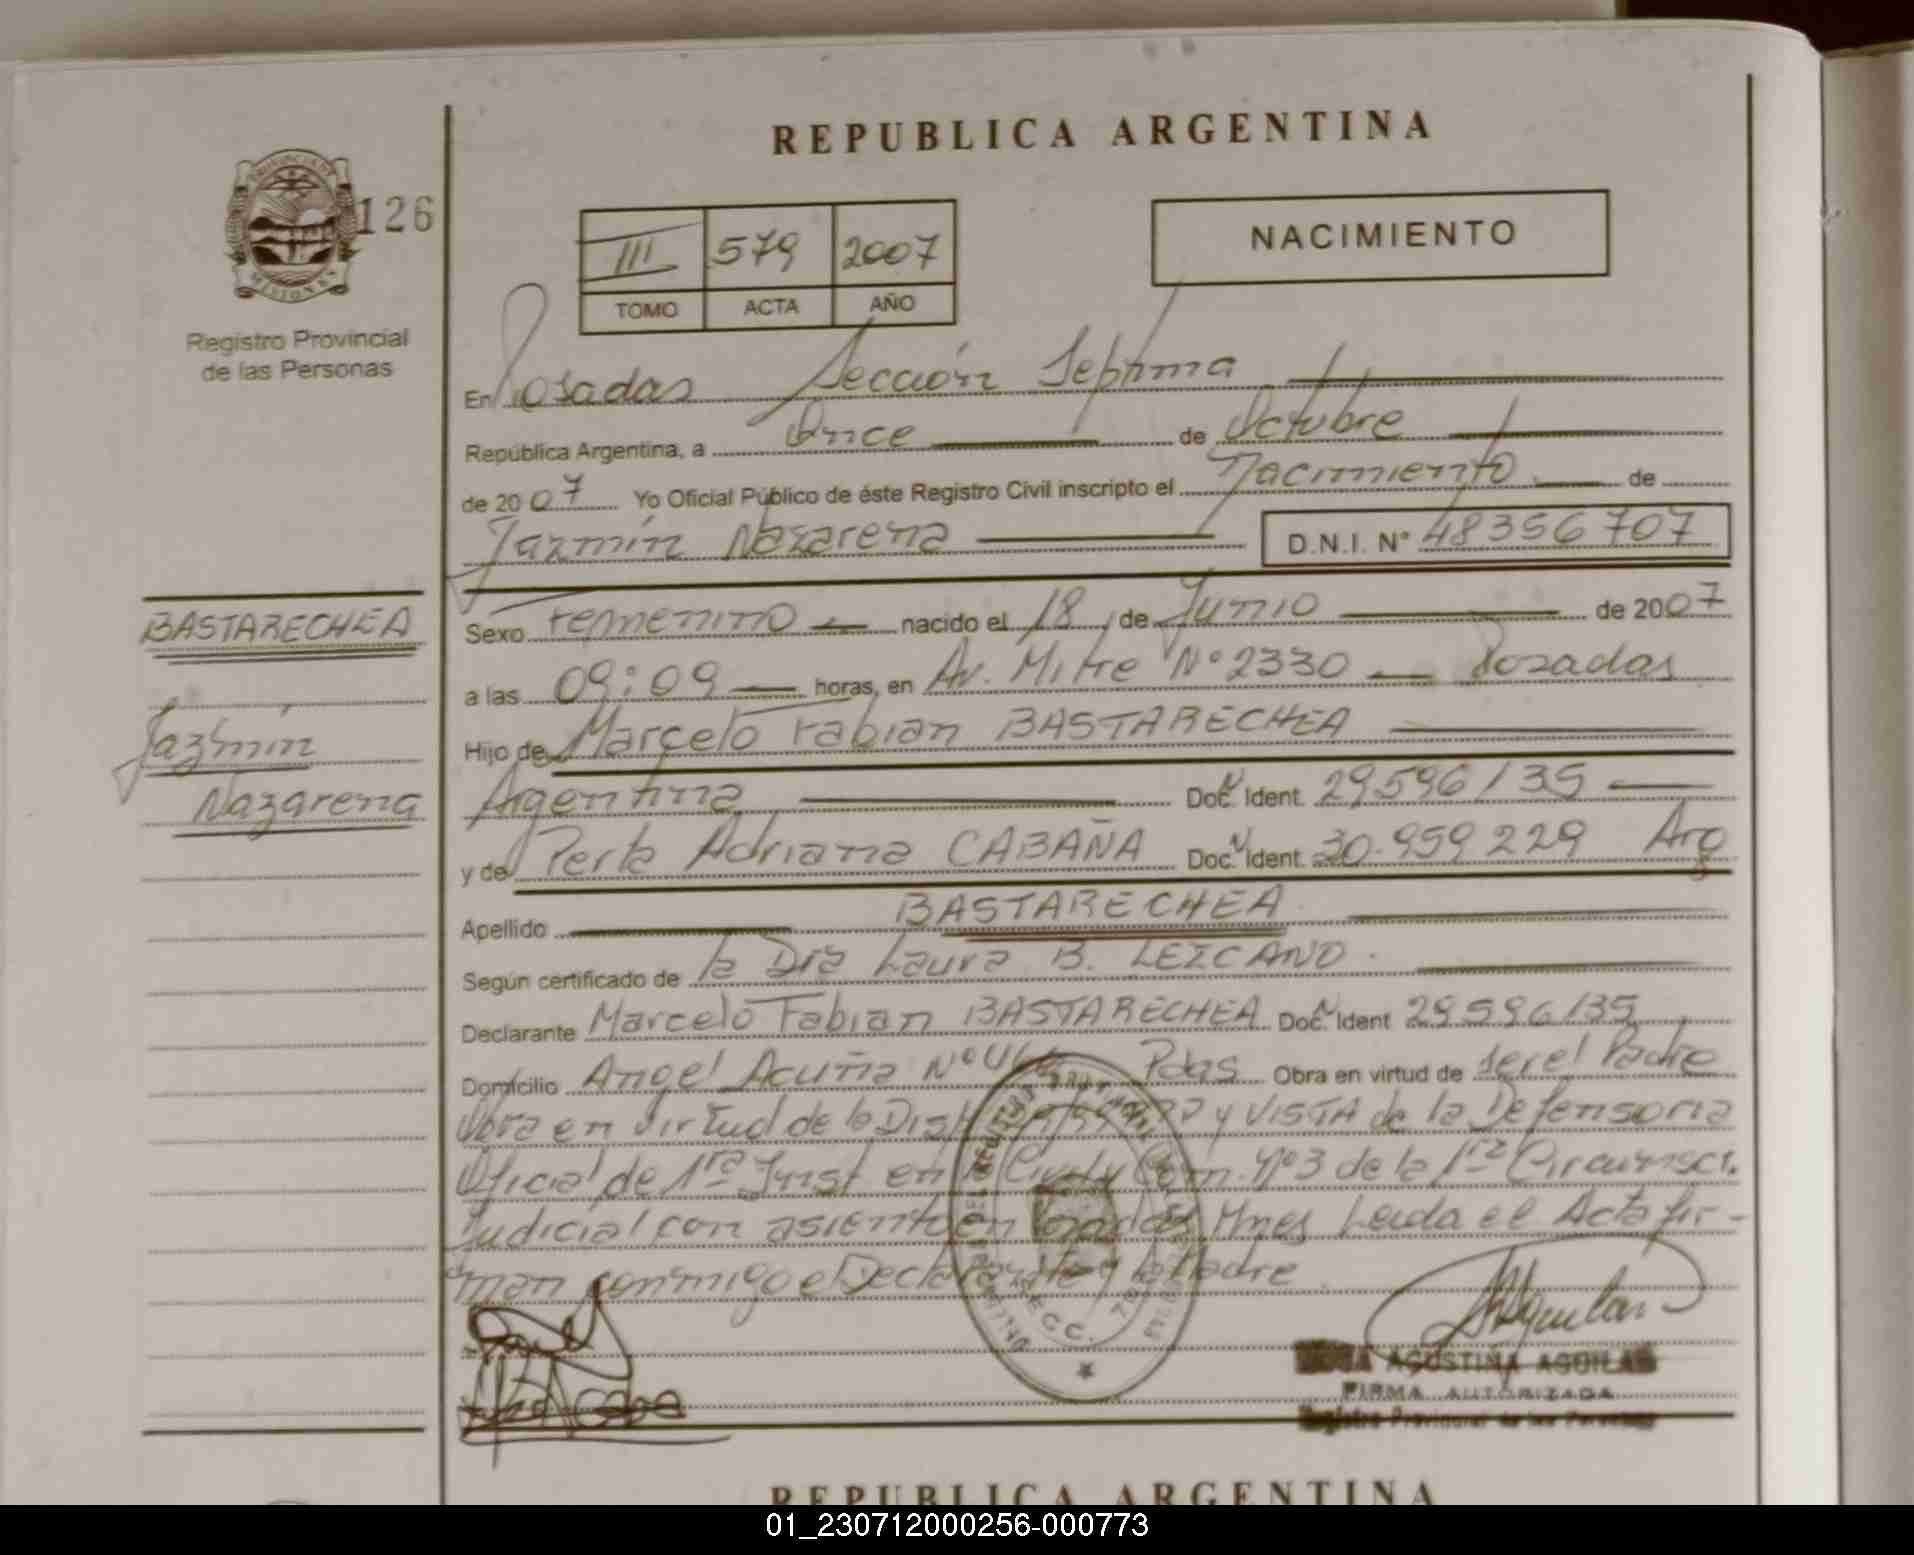 REPUBLICA ARGENTINA
PROVINCIA DE MISIONES
126
Registro Provincial
de las Personas
III 579 2007
TOMO ACTA AÑO
NACIMIENTO
En Posadas Sección Septima
República Argentina, a Once de Octubre
de 2007 Yo Oficial Público de éste Registro Civil inscripto el Nacimiento de
Jazmín Nazarena D.N.I. N° 48356707
BASTARECHEA
Jazmín
Nazarena
Sexo Femenino nacido el 18 de Junio de 2007
a las 09:09 horas, en Av. Mitre N° 2330 Posadas
Hijo de Marcelo Fabian BASTARECHEA
Argentina Doc. Ident. 29.596135
y de Perla Adriana CABAÑA Doc. Ident. 30.959229 Arg
Apellido BASTARECHEA
Según certificado de la Dra Laura B. LEZCANO
Declarante Marcelo Fabian BASTARECHEA Doc. Ident 29596135
Domicilio Angel Acuña N° Pdas Obra en virtud de ser el Padre
Obra en virtud de la y VISTA de la Defensoria
Oficial de 1ra Inst en lo Civil y Com. N°3 de la 1ra Circunscr.
Judicial con asiento en Posadas Mnes Leida el Acta fir-
man conmigo el Declarante y la Madre
AGUSTINA AGUILAR
FIRMA AUTORIZADA
Registro Provincial de las Personas
REPUBLICA ARGENTINA
01_230712000256-000773